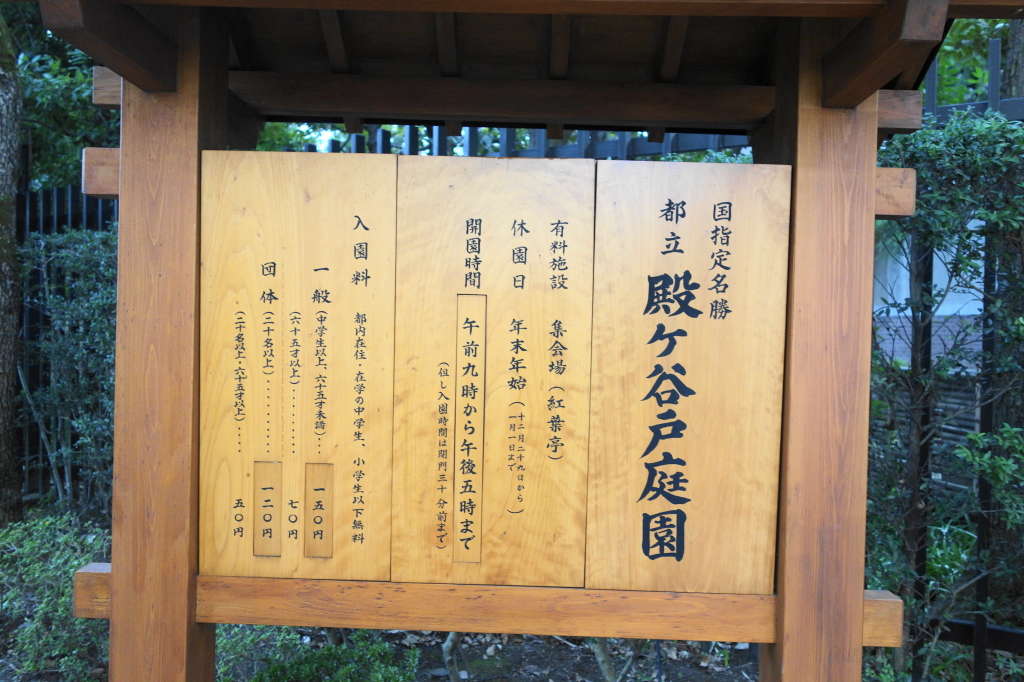 国指定名勝
都立 殿ヶ谷戸庭園
有料施設 集会場(紅葉亭)
休園日 年末年始(十二月二十九日から
一月一日まで)
開園時間 午前九時から午後五時まで
(但し入園時間は閉門三十分前まで)
入園料 都内在住・在学の中学生、小学生以下無料
一般(中学生以上、六十五才未満)‥ 一五〇円
(六十五才以上)‥‥‥‥ 七〇円
団体(二十名以上)‥‥‥‥ 一二〇円
(二十名以上・六十五才以上)‥‥ 五〇円